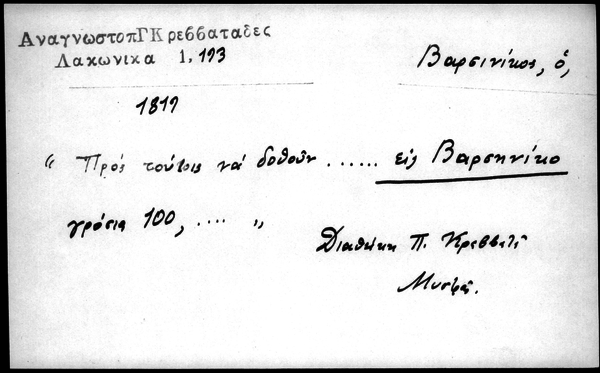 ΑναγνωστοπΓΚρεββαταδες
Λακωνικα 1, 193
Βαρσινίκος, ὁ,
1819
“ Πρός τούτοις νά δοθοῦν ...... εἰς Βαρσηνίκο
γρόσια 100, .... „
Διαθήκη Π. Κρεββατᾶ
Μυστρᾶς.